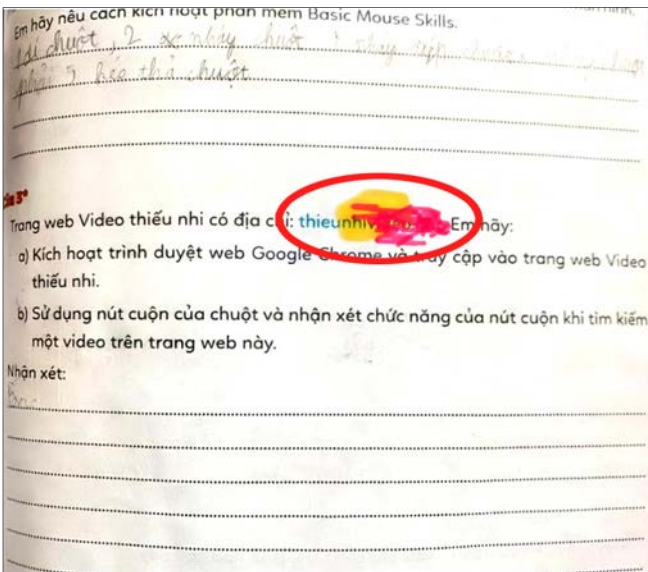 Em hãy nêu cách kích hoạt phần mềm Basic Mouse Skills.
chuột, 2 nháy chuột
phải 5 kéo thả chuột
Trang web Video thiếu nhi có địa chỉ: thieunhiv Em hãy:
a) Kích hoạt trình duyệt web Google Chrome và truy cập vào trang web Video
thiếu nhi.
b) Sử dụng nút cuộn của chuột và nhận xét chức năng của nút cuộn khi tìm kiếm
một video trên trang web này.
Nhận xét: